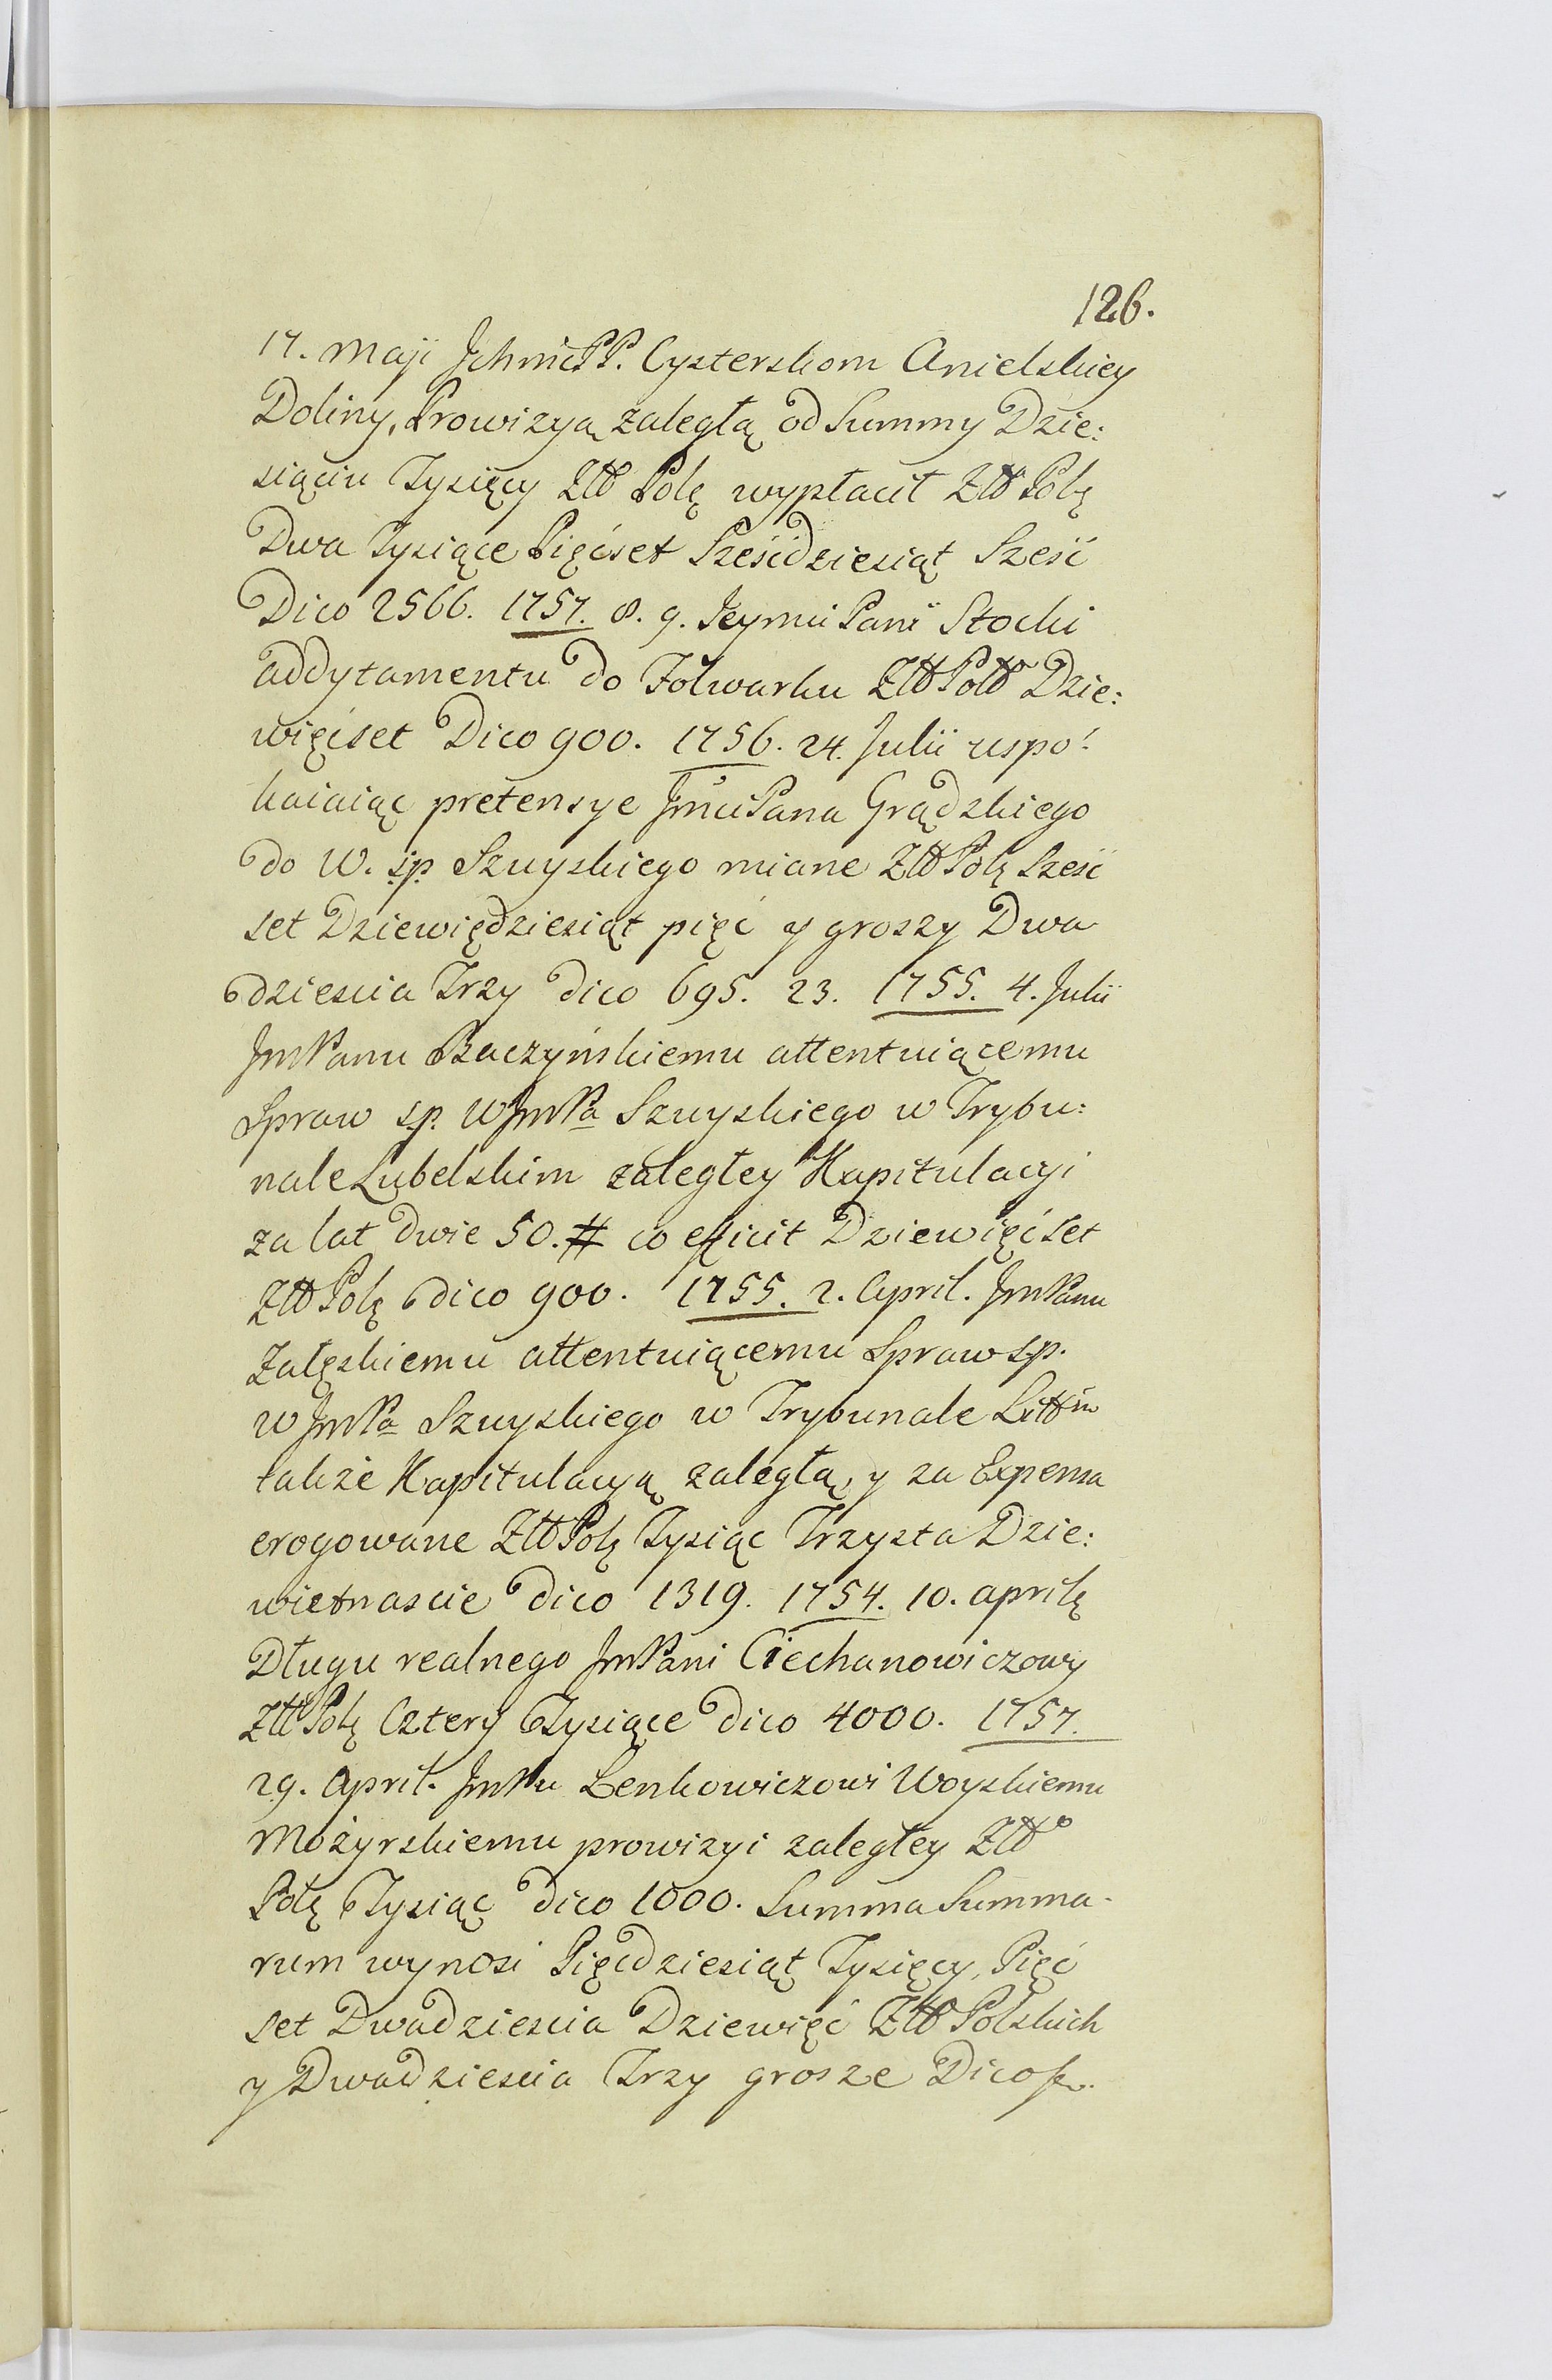 126.
17. Maji JchmćPP. Cysterskom Anielskiey
Doliny, Prowizyą zaległą od Summy Dzie:
siąciu Tysięcy Złł Polę wypłacił Złł Polę
Dwa Tysiące Pięćset Sześćdziesiąt Sześć
Dico 2566. 1757. 8. 9. Jeymci Pani Stocki
addytamentu do Folwarku Złł Poll Dzie:
więćset Dico 900. 1756. 24. Julii uspo:
kaiaiąc pretensye JmciPana Grądzkiego
do W. śp. Szuyskiego miane Złł Polę Sześć
set Dziewiędziesiąt pięć y groszy Dwa
dziescia Trzy dico 695. 23. 1755. 4. Julii
JmPanu Baczyńskiemu attentuiącemu
Spraw s.p. WJmPa Szuyskiego w Trybu:
nale Lubelskim zaległey Kapitulacyi
za lat dwie 50. # co efficit Dziewięć set
Złł Polę dico 900. 1755. 2. April. JmPanu
Załęskiemu attentuiącemu Spraw s.p.
WJmPa Szuyskiego w Trybunale Littm
także Kapitulacyą zaległą, y za Expensa
erogowane Złł Polę Tysiąc Trzysta Dzie:
wietnascie dico 1319. 1754. 10. aprilę
Długu realnego JmPani Ciechanowiczowy
Złł Polę Cztery Tysiące dico 4000. 1757.
29. April. JmPu Lenkowiczowi Woyskiemu
Mozyrskiemu prowizyi zaległey Złł
Polę Tysiąc dico 1000. Summa Summa-
rum wynosi Pięćdziesiąt Tysięcy, Pięć
set Dwadziescia Dziewięć Złł Polskich
y Dwadziescia Trzy grosze Dico